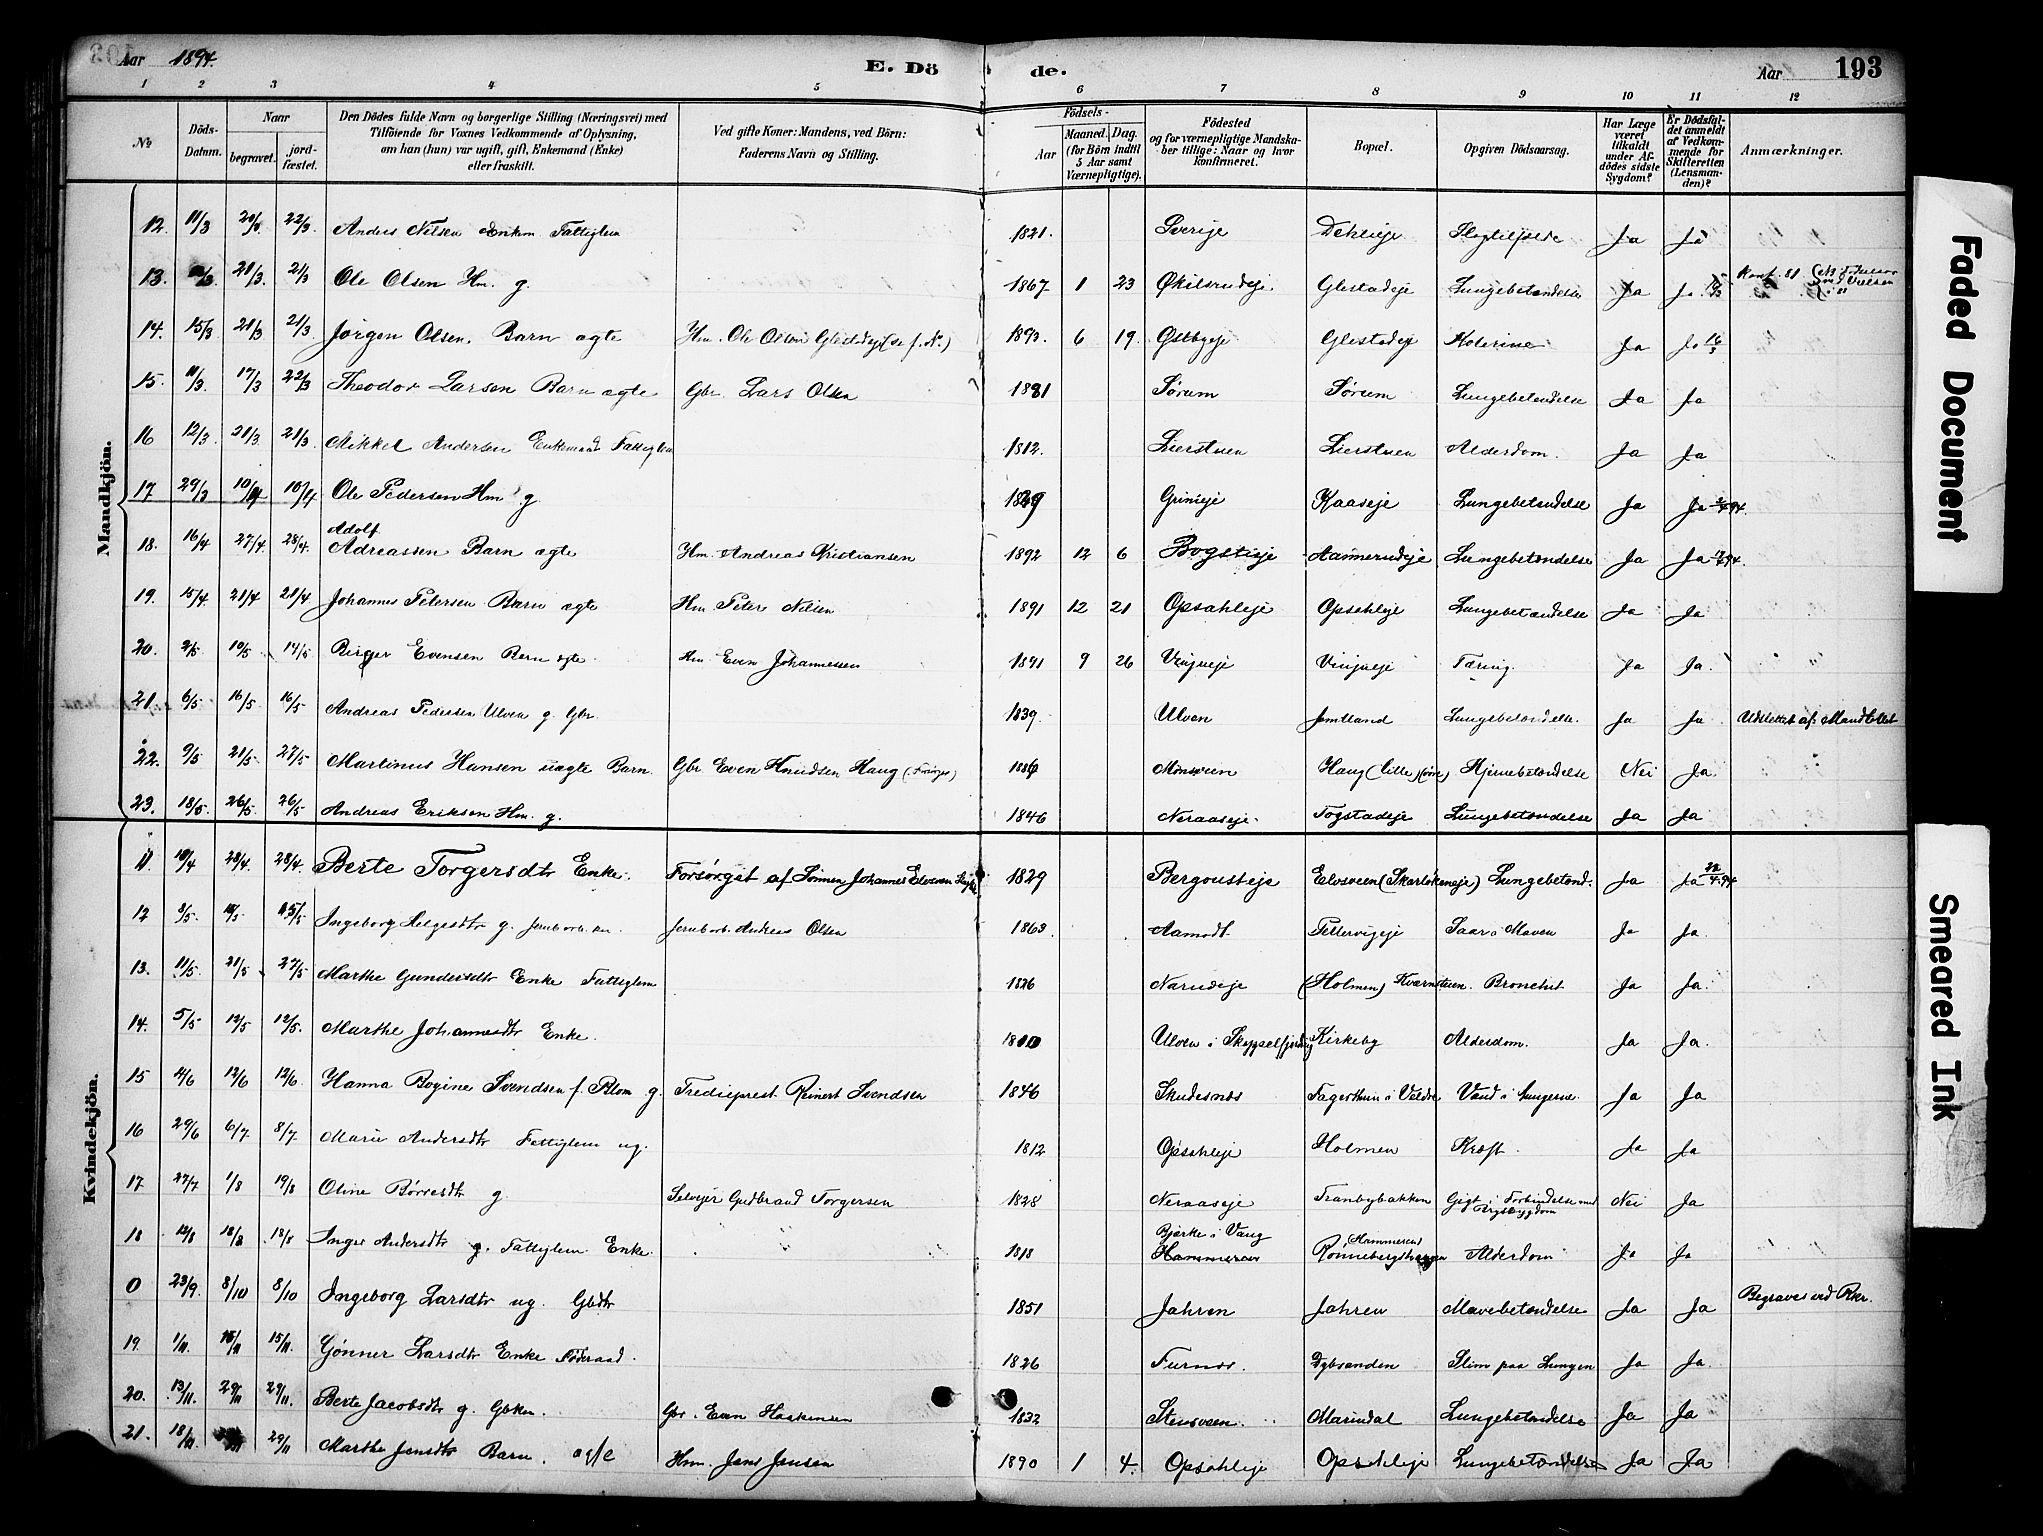 Aar 1894. E. Dö de. Aar 193
1 2 3 4 5 6 7 8 9 10 11 12
No Döds-Datum. Naar begravet. jordfæstet. Den Dödes fulde Navn og borgerlige Stilling (Næringsvei) med Tilföiende for Voxnes Vedkommende af Oplysning, om han (hun) var ugift, gift, Enkemand (Enke) eller fraskilt. Ved gifte Koner: Mandens, ved Börn: Faderens Navn og Stilling. Födsels- Aar Maaned. Dag. (for Börn indtil 5 Aar samt Værnepligtige). Födested og for værnepligtige Mandskaber tillige: Naar og hvor konfirmeret. Bopæl. Opgiven Dödsaarsag. Har Læge været tilkaldt under Afdödes sidste Sygdom? Er Dödsfaldet anmeldt af Vedkommende for Skifteretten (Lensmanden)? Anmærkninger.
Mandkjön.
12. 11/3 22/3 Anders Nilsen Enkem. Fattiglem 1821. Sverige Ja Ja
13. 21/3 21/3 Ole Olsen Hm. g. 1867 1 23 Økilsrudeje Glestadeje Lungebetændelse Ja Ja Konf. 81
14. 15/3 21/3 21/3 Jørgen Olsen. Barn ægte Hm. Ole Olsen 1893. 6 19 Østbyeje Glestadeje Ja Ja 16/3
15. 11/3 17/3 22/3 Theodor Larsen Barn ægte Gbr. Lars Olsen 1881 Sørum Sørum Lungebetændelse Ja Ja
16 12/3 21/3 21/3 Mikkel Andersen Enkemand Fattiglem 1812. Lierstuen Lierstuen Alderdom. Ja Ja
17 29/3 10/4 10/4 Ole Pedersen Hm g Kaaseje Lungebetændelse Ja Ja
18. 16/4 27/4 28/4. Adolf Adreassen Barn ægte Hm. Andreas Kristiansen 1892 12 6 Bogstieje Lungebetændelse Ja Ja
19. 15/4 21/4 21/4 Johannes Petersen Barn ægte Hm Peter Nilsen 1891 12 21 Opsahleje Opsahleje Lungebetændelse Ja Ja
20. 2/5 10/5 14/5 Birger Evensen Barn ægte. Hm Even Johannessen 1891 9 26 Tæring. Ja Ja.
21. 6/5 16/5 16/5 Andreas Pedersen Ulven g. Gbr 1839. Ulven Jemtland Lungebetændelse. Ja Ja
22. 9/5 21/5 27/5 Martinus Hansen uægte Barn. Gbr Even Knudsen Haug Haug (lille) Hjernebetændelse Nei Ja.
23. 18/5. 26/5 26/5 Andreas Eriksen Hm. g. 1846 Neraaseje. Togstadeje Lungebetændelse Ja Ja
Kvindekjön.
11 10/4 28/4. 28/4. Berte Torgersdtr Enke. Forsørget af Sønnen Johannes Elvsveen 1829 Bergousteje Elvsveen (Skarløkeneje) Lungebetænd. Ja Ja 22/4.94
12 3/5 15/5 Ingeborg Helgesdtr g. Jernb. arb. Andreas Olsen 1863 Aamodt. Tellervigeje Saar i Maven Ja Ja.
13. 11/5 21/5 27/5 Marthe Gundersdtr Enke Fattiglem 1826 Narudeje (Holmen) Kværnstuen. Bronchit Ja Ja.
14. 5/5 12/5 12/5. Marthe Johannesdtr Enke. 1810 Ulven i Kirkeby Alderdom. Ja Ja.
15 12/6 12/6 Hanna Bogine Svendsen f. Blom g. Tredieprest Reinert Svendsen 1846 Skudesnæs Fagerthun i Valdre Vand i Lungerne. Ja Ja
16 29/6 6/7 8/7. Marie Andersdtr Fattiglem ug. 1812 Opsahleje Holmen Kræft. Ja Ja
17 27/7 1/8 19/8 Oline Børresdtr g. Selveier Gudbrand Torgersen 1828 Neraaseje Tranbybakken Gigt i Forbindelse med Nei Ja
18 12/8 18/8 18/8 Inger Andersdtr g. Fattiglem Enke. 1818 Bjerke i Vang Hammeren Hammeren Alderdom Ja Ja
0 23/9. 8/10 8/10 Ingeborg Larsdtr ug. Gbdtr 1851 Jahren Jahren Mavebetændelse Ja Ja Begraves ved Rkr.
19. 1/11. 15/11 15/11. Gønner Larsdtr Enke Føderaad. 1826 Furnæs. Dybsanden Slim paa Lungen Ja Ja.
20. 13/11. 29/11 29/11. Berte Jacobsdtr g. Gbken. Gbr. Even Haakensen 1832 Stensveen. Marindal Lungebetændelse Ja Ja
21. 18/11. 29/11 Marthe Jensdtr Barn. ægte Hm. Jens Jensen 1890 1 4. Opsahleje Opsahleje Lungebetændelse Ja Ja
Faded Document
Smeared Ink